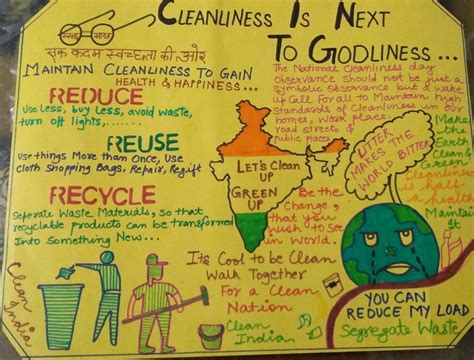 CLEANLINESS IS NEXT
TO GODLINESS...
एक कदम स्वच्छता की ओर
MAINTAIN CLEANLINESS TO GAIN
HEALTH & HAPPINESS...
REDUCE
Use Less, buy Less, avoid waste,
turn off lights,......
REUSE
Use things More than Once, Use
Cloth Shopping Bags, Repair, Regift
RECYCLE
Seperate Waste Materials, so that
recyclable products can be transformed
Into Something New...
The National Cleanliness day
Observance Should not be just a
Symbolic Observance but a wake
up Call For all to Maintain high
Standards of Cleanliness in our
homes, work place,
road streets &
Public places.
LET'S CLEAN
UP
GREEN
UP
LITTER
MAKES THE
WORLD BITTER
Make
the
Earth
Clean &
Green
Cleanliness
is half
a health
Maintain
It
Be the
Change,
that you
wish to See
in World.
It's Cool to be Clean
Walk Together
For a Clean
Nation
Clean
India
Clean
India
YOU CAN
REDUCE MY LOAD
Segregate Waste